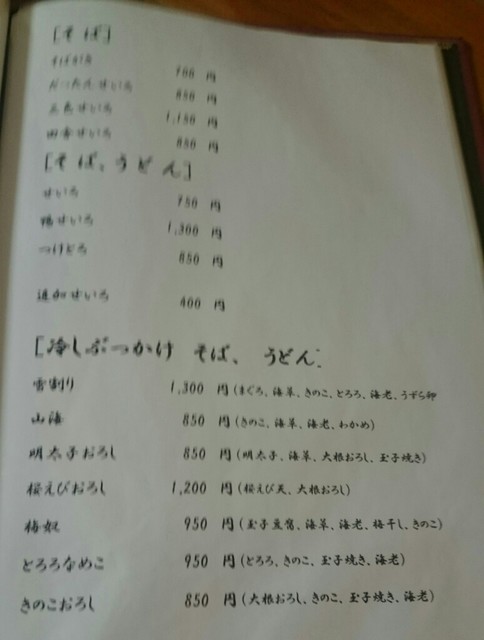 [そば]
700 円
だったんせいろ 850 円
三色せいろ 1,150 円
田舎せいろ 850 円
[そば、うどん]
せいろ 750 円
鴨せいろ 1,300 円
つけとろ 850 円
追加せいろ 400 円
[冷しぶっかけ そば、 うどん]
雪割り 1,300 円(まぐろ、海草、きのこ、とろろ、海老、うずら卵
山海 850 円(きのこ、海草、海老、わかめ)
明太子おろし 850 円(明太子、海草、大根おろし、玉子焼き)
桜えびおろし 1,200 円(桜えび天、大根おろし)
梅奴 950 円(玉子豆腐、海草、海老、梅干し、きのこ)
とろろなめこ 950 円(とろろ、きのこ、玉子焼き、海老)
きのこおろし 850 円(大根おろし、きのこ、玉子焼き、海老)